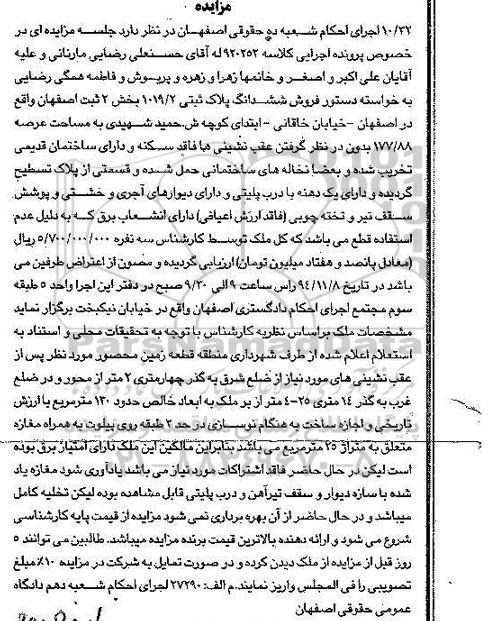 مزایده
۱۰/۳۲ اجرای احکام شعبه ده حقوقی اصفهان در نظر دارد جلسه مزایده ای در
خصوص پرونده اجرایی کلاسه ۹۲۰۲۵۲ له آقای حسنعلی رضایی مارنانی و علیه
آقایان علی اکبر و اصغر و خانمها زهرا و زهره و پریوش و فاطمه همگی رضایی
به خواسته دستور فروش ششدانگ پلاک ثبتی ۱۰۱۹/۲ بخش ۲ ثبت اصفهان واقع
در اصفهان -خیابان خاقانی - ابتدای کوچه ش.حمید شهیدی به مساحت عرصه
۱۷۷/۸۸ بدون در نظر گرفتن عقب نشینی ها فاقد سکنه و دارای ساختمان قدیمی
تخریب شده و بعضا نخاله های ساختمانی حمل شده و قسمتی از پلاک تسطیح
گردیده و دارای یک دهنه با درب پلیتی و دارای دیوارهای آجری و خشتی و پوشش
سقف تیر و تخته چوبی (فاقد ارزش اعیانی) دارای انشعاب برق که به دلیل عدم
استفاده قطع می باشد که کل ملک توسط کارشناس سه نفره ۵/۷۰۰/۰۰۰/۰۰۰ ریال
(معادل پانصد و هفتاد میلیون تومان) ارزیابی گردیده و مصون از اعتراض طرفین می
باشد در تاریخ ۹۴/۱۱/۸ راس ساعت ۹ الی ۹/۳۰ صبح در دفتر این اجرا واحد ۵ طبقه
سوم مجتمع اجرای احکام دادگستری اصفهان واقع در خیابان نیکبخت برگزار نماید
مشخصات ملک براساس نظریه کارشناس با توجه به تحقیقات محلی و استناد به
استعلام اعلام شده از طرف شهرداری منطقه قطعه زمین محصور مورد نظر پس از
عقب نشینی های مورد نیاز از ضلع شرق به گذر چهارمتری ۲ متر از محور و در ضلع
غرب به گذر ۱۴ متری ۲۵-۴ متر از بر ملک به ابعاد خالص حدود ۱۳۰ مترمربع با ارزش
تاریخی و اجازه ساخت به هنگام نوسازی در حد ۲ طبقه روی پیلوت به همراه مغازه
متعلق به متراژ ۲۵ مترمربع می باشد بنابراین مالکین این ملک دارای امتیاز برق بوده
است لیکن در حال حاضر فاقد اشتراکات مورد نیاز می باشد یادآوری شود مغازه یاد
شده با سازه دیوار و سقف تیرآهن و درب پلیتی قابل مشاهده بوده لیکن تخلیه کامل
میباشد و در حال حاضر از آن بهره برداری نمی شود مزایده از قیمت پایه کارشناسی
شروع می شود و ارائه دهنده بالاترین قیمت برنده مزایده میباشد. طالبین می توانند ۵
روز قبل از مزایده از ملک دیدن کرده و در صورت تمایل به شرکت در مزایده ۱۰٪ مبلغ
تصویبی را فی المجلس واریز نمایند. م الف: ۲۷۲۹۰ اجرای احکام شعبه دهم دادگاه
عمومی حقوقی اصفهان
ParsNamadData